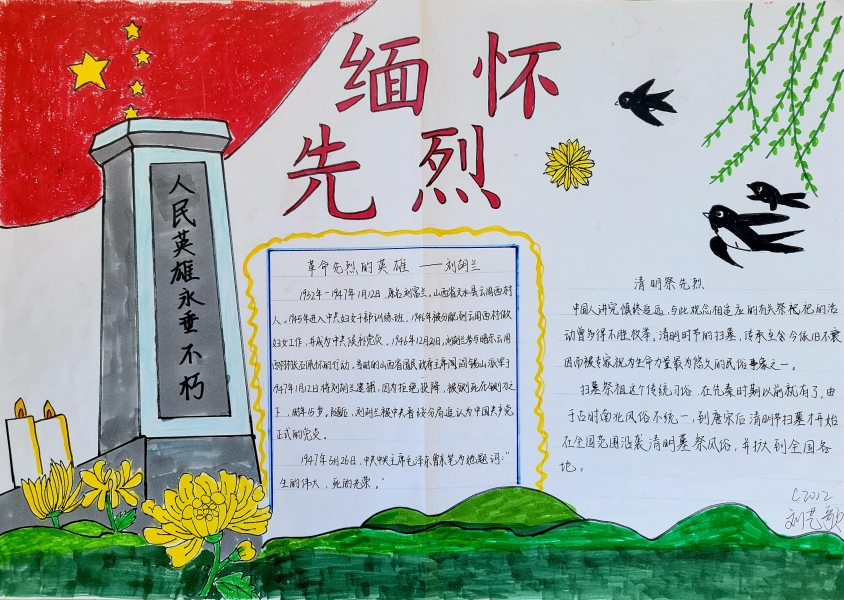 缅怀
先烈
人民英雄永垂不朽
革命先烈的英雄——刘胡兰
1932年-1947年1月12日，原名刘富兰。山西省文水县云周西村
人。1945年进入中共妇女干部训练班，1946年被分配到云周西村做
妇女工作，并成为中共候补党员。1946年12月21日，刘胡兰参与暗杀云周
西村村长石佩怀的行动，当时的山西省国民政府主席阎锡山派军于
1947年1月12日将刘胡兰逮捕，因为拒绝投降，被铡死在铡刀之
下，时年15岁。随后，刘胡兰被中共晋绥分局追认为中国共产党
正式的党员。
1947年3月26日，中共中央主席毛泽东曾亲笔为她题词：“
生的伟大，死的光荣。”
清明祭先烈
中国人讲究慎终追远，与此观念相适应的有关祭祀的活
动曾为得不胜枚举。清明时节的扫墓，传承至今依旧不衰
因而被专家视为生命力最为悠久的民俗事象之一。
扫墓祭祖这个传统习俗，在先秦时期以前就有了。由
于古时南北风俗不统一，到唐宋后清明节扫墓才开始
在全国范围沿袭清明墓祭风俗，并扩大到全国各
地。
C2012
刘艺歌